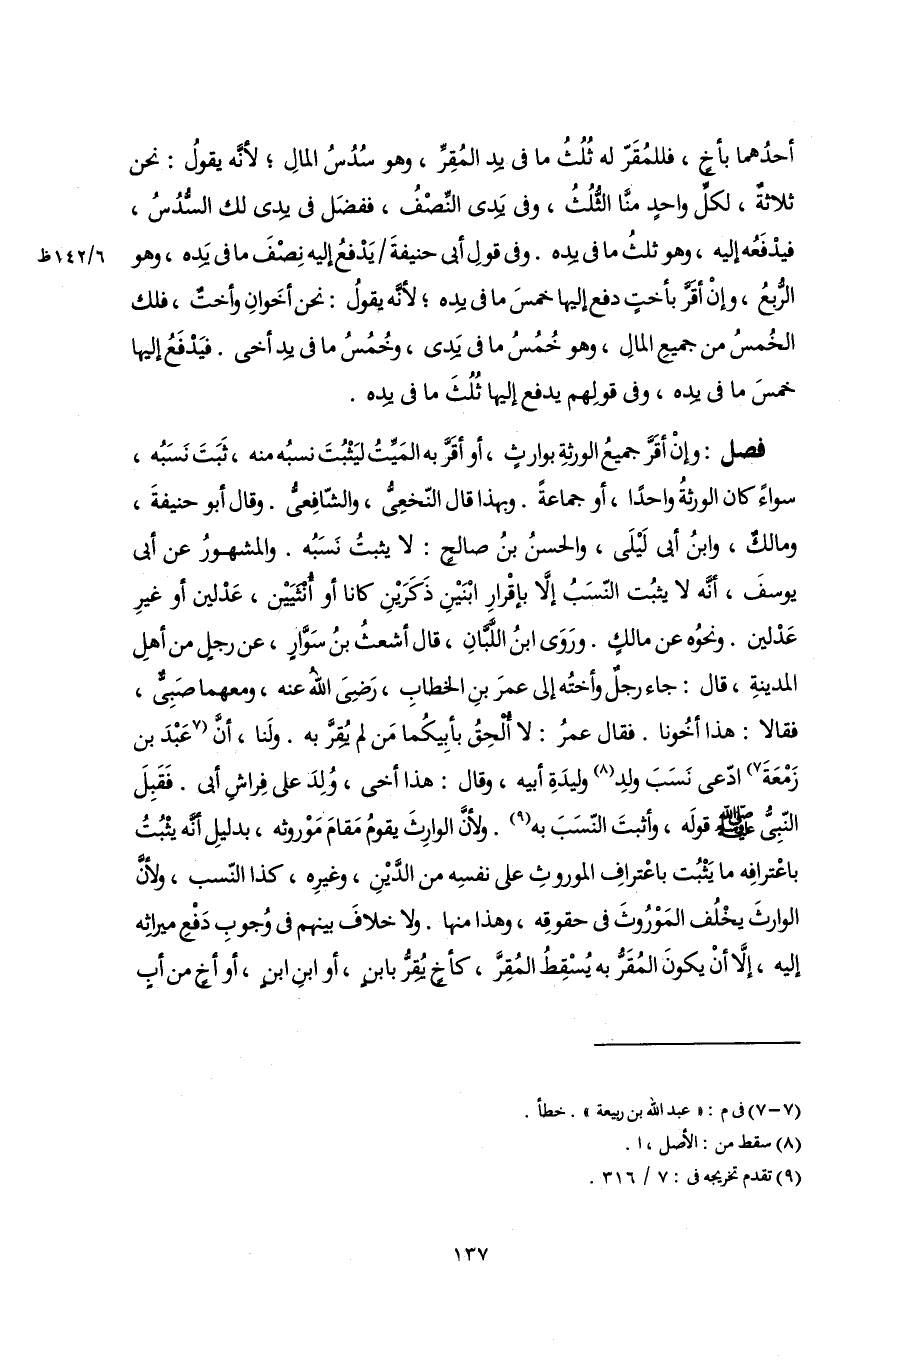 أحدُهما بأخٍ ، فللمُقَرّ له ثُلُثُ ما فى يدِ المُقِرِّ ، وهو سُدُسُ المالِ ؛ لأنَّه يقولُ : نحن
ثلاثةٌ ، لكلِّ واحدٍ منَّا الثُّلُثُ ، وفى يَدِى النِّصْفُ ، ففضَل فى يدِى لك السُّدُسُ ،
فيدْفَعُه إليه ، وهو ثلثُ ما فى يدِه . وفى قولِ أبى حنيفةَ / يَدْفعُ إليه نِصْفَ ما فى يَدِه ، وهو ١٤٢/٦ظ
الرُّبعُ ، وإنْ أقَرَّ بأختٍ دفع إليها خمسَ ما فى يدِه ؛ لأنَّه يقولُ : نحن أخَوانِ وأختٌ ، فلك
الخُمسُ من جميعِ المالِ ، وهو خُمُسُ ما فى يَدِى ، وخُمُسُ ما فى يدِ أخى . فيَدْفَعُ إليها
خمسَ ما فى يدِه ، وفى قولِهم يدفع إليها ثُلُثَ ما فى يدِه .
فصل : وإنْ أقَرَّ جميعُ الورثةِ بوارثٍ ، أو أقَرَّ به المَيِّتُ ليَثْبُتَ نسبُه منه ، ثَبَتَ نَسَبُه ،
سواءً كان الورثةُ واحدًا ، أو جماعةً . وبهذا قال النّخعِىُّ ، والشّافِعىُّ . وقال أبو حنيفةَ ،
ومالكٌ ، وابنُ أبى لَيْلَى ، والحسنُ بنُ صالحٍ : لا يثبتُ نَسَبُه . والمشهورُ عن أبى
يوسفَ ، أنَّه لا يثبُت النّسَبُ إلَّا بإقْرارِ اثنَيْنِ ذَكَرَيْنِ كانا أو أُنْثَيَيْن ، عَدْلين أو غيرِ
عَدْلين . ونحوُه عن مالكٍ . ورَوَى ابنُ اللَّبَّانِ ، قال أشعثُ بنُ سَوَّارٍ ، عن رجلٍ من أهلِ
المدينةِ ، قال : جاء رجلٌ وأختُه إلى عمرَ بنِ الخطابِ ، رَضِىَ اللهُ عنه ، ومعهما صَبِىٌّ ،
فقالا : هذا أخُونا . فقال عمرُ : لا أُلْحِقُ بأبيكُما مَن لم يُقِرَّ به . ولَنا ، أنَّ (٧عَبْدَ بن
زَمْعَةَ٧) ادّعى نَسَبَ ولدِ(٨) وليدَةِ أبيه ، وقال : هذا أخى ، وُلِدَ على فِراشِ أبى . فَقَبِلَ
النّبِىُّ ﷺ قولَه ، وأثبتَ النّسَبَ به(٩) . ولأنَّ الوارثَ يقومُ مَقامَ مَوْروثِه ، بدليلِ أنَّه يثْبُتُ
باعْترافِه ما يَثْبُت باعْترافِ الموروثِ على نفسِه من الدَّيْنِ ، وغيرِه ، كذا النّسب ، ولأنَّ
الوارثَ يخْلُف المَوْرُوثَ فى حقوقِه ، وهذا منها . ولا خلافَ بينهم فى وُجوبِ دَفْعِ ميراثِه
إليه ، إلَّا أنْ يكونَ المُقَرُّ به يُسْقِطُ المُقِرَّ ، كأخٍ يُقِرُّ بابنٍ ، أو ابنِ ابنٍ ، أو أخٍ من أبٍ
(٧-٧) فى م : « عبد الله بن ربيعة » . خطأ .
(٨) سقط من : الأصل ، ا .
(٩) تقدم تخريجه فى : ٧ / ٣١٦ .
١٣٧